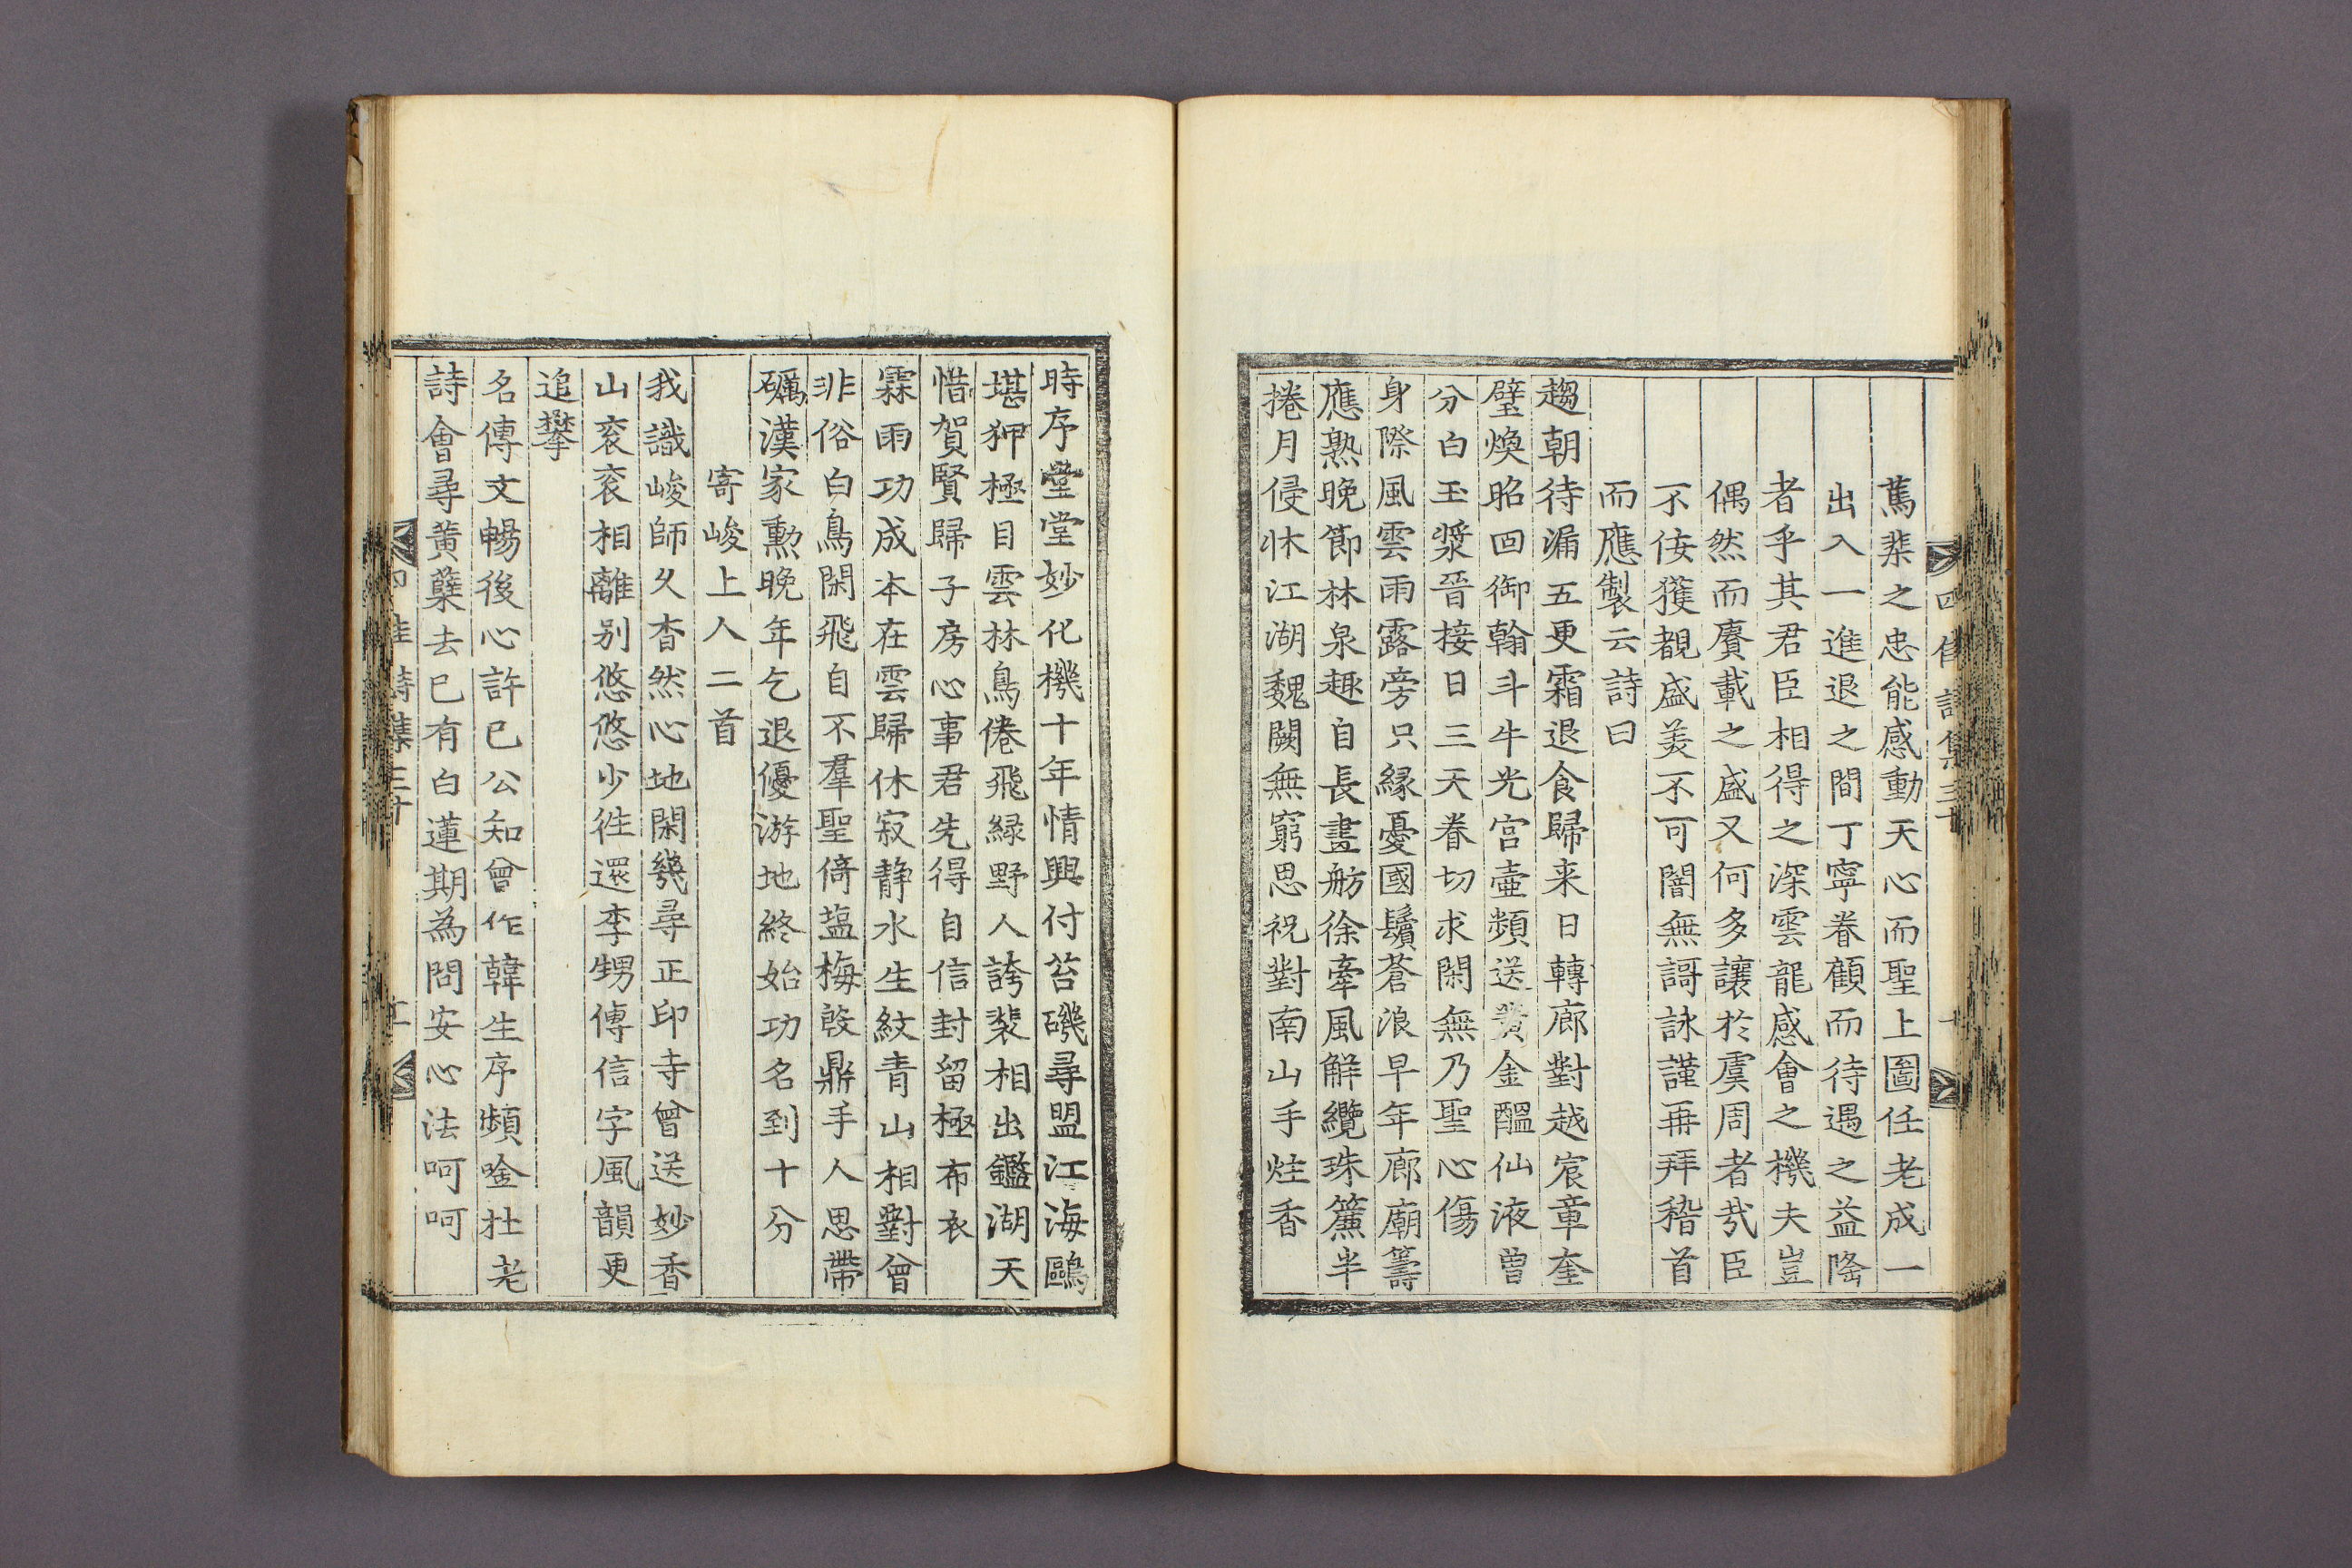 四佳詩集三十
蔿棐之忠能感動天心而聖上圖任老成一
出入一進退之間丁寧眷顧而待遇之益隆
者乎其君臣相得之深雲龍感會之機夫豈
偶然而賡載之盛又何多讓於虞周者㦲臣
不侫獲覩盛美不可闇無謌詠謹再拜稽首
而應製云詩曰
趨朝待漏五更霜退食歸来日轉廊對越宸章奎
璧煥昭回御翰斗牛光宫壷頻送黄金醞仙液曽
分白玉漿晉接日三天眷切求閑無乃聖心傷
身際風雲雨露旁只縁憂國鬢蒼浪早年廊廟籌
應熟晚節林泉趣自長畫舫徐牽風解纜珠簾半
捲月侵牀江湖魏闕無窮思祝對南山手炷香
時序堂堂妙化機十年情興付苔磯尋盟江海鷗
堪狎極目雲林鳥倦飛緑野人誇裴相出鑑湖天
惜賀賢歸子房心事君先得自信封留極布衣
霖雨功成本在雲歸休寂静水生紋青山相對曾
非俗白鳥閑飛自不羣聖倚塩梅殷鼎手人思帶
礪漢家勲晚年乞退優游地終始功名到十分
寄峻上人二首
我識峻師久杳然心地閑幾尋正印寺曾送妙香
山衮衮相離别悠悠少徃還李甥傳信字風韻更
追攀
名傳文暢後心許已公知曾作韓生序頻唫杜老
詩會尋黄蘗去已有白蓮期為問安心法呵呵
四佳詩集三十